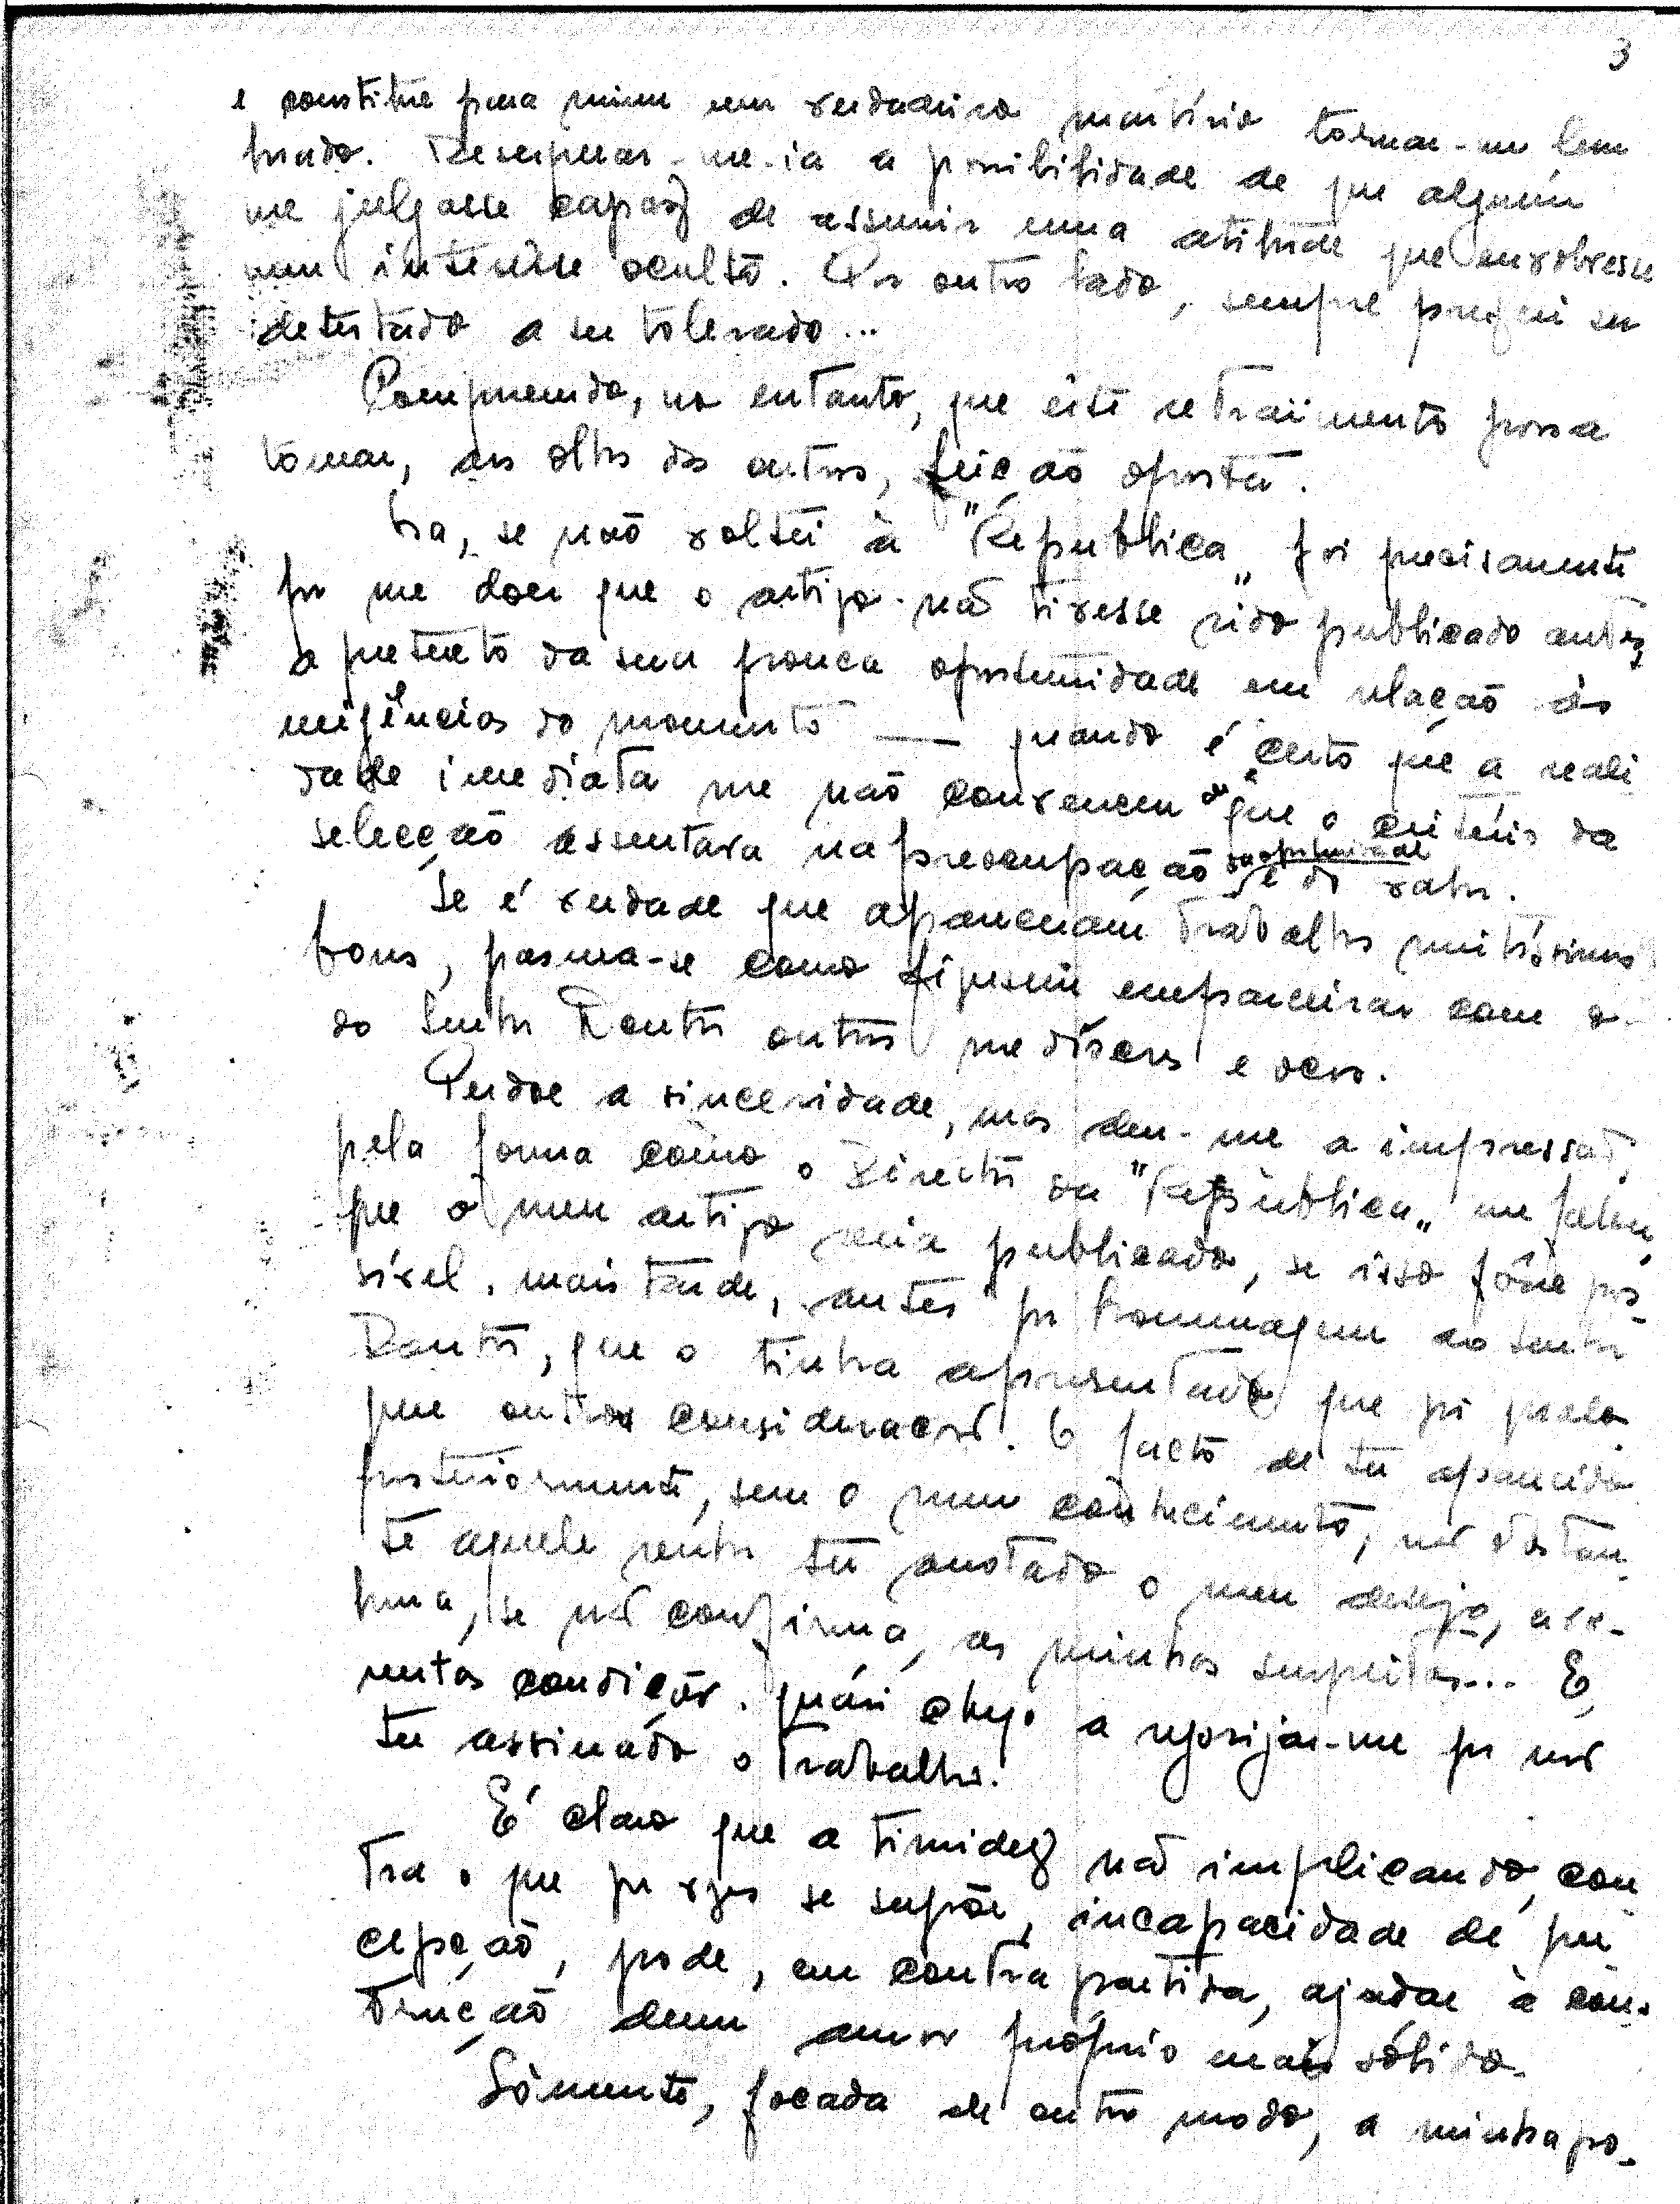 3
e constitue para mim um verdadeiro martírio tornar-me lem
brado. Desesperar-me-ia a possibilidade de que alguém
me julgasse capaz de assumir uma atitude que envolvesse
um interêsse oculto. Por outro lado, sempre preferi ser
detestado a ser tolerado...
Compreendo, no entanto, que êste retraimento possa
tomar, aos olhos dos outros, feição oposta.
Ora, se não voltei à "República" foi precisamente
por me doer que o artigo não tivesse sido publicado antes,
a pretexto da sua pouca oportunidade em relação às
exigências do momento — quando é certo que a reali
dade imediata me não convenceu de que o critério da
selecção assentava na preocupação da oportunidade e do valor.
Se é verdade que apareceram trabalhos muitíssimo
bons, pasma-se como fizeram emparceirar com o
do Senhor Doutor outros medíocres e ocos.
Perdoe a sinceridade, mas deu-me a impressão,
pela forma como o Director da "República" me falou,
que o meu artigo seria publicado, se isso fôsse pos-
sível, mais tarde, antes por homenagem ao senhor
Doutor, que o tinha apresentado que por qual-
quer outra consideração. O facto de ter aparecido
posteriormente, sem o meu conhecimento, não obstan-
te aquele senhor ter anotado o meu desejo,
se não confirma, as minhas suspeitas... E,
nestas condições, quási chego a regosijar-me por não
ter assinado o trabalho.
É claro que a timidez não implicando, con
tra o que por vezes se supõe, incapacidade de per
cepção, pode, em contra partida, ajudar à cons-
trução dum amor próprio mais sólido.
Sòmente, focada de outro modo, a minha po-